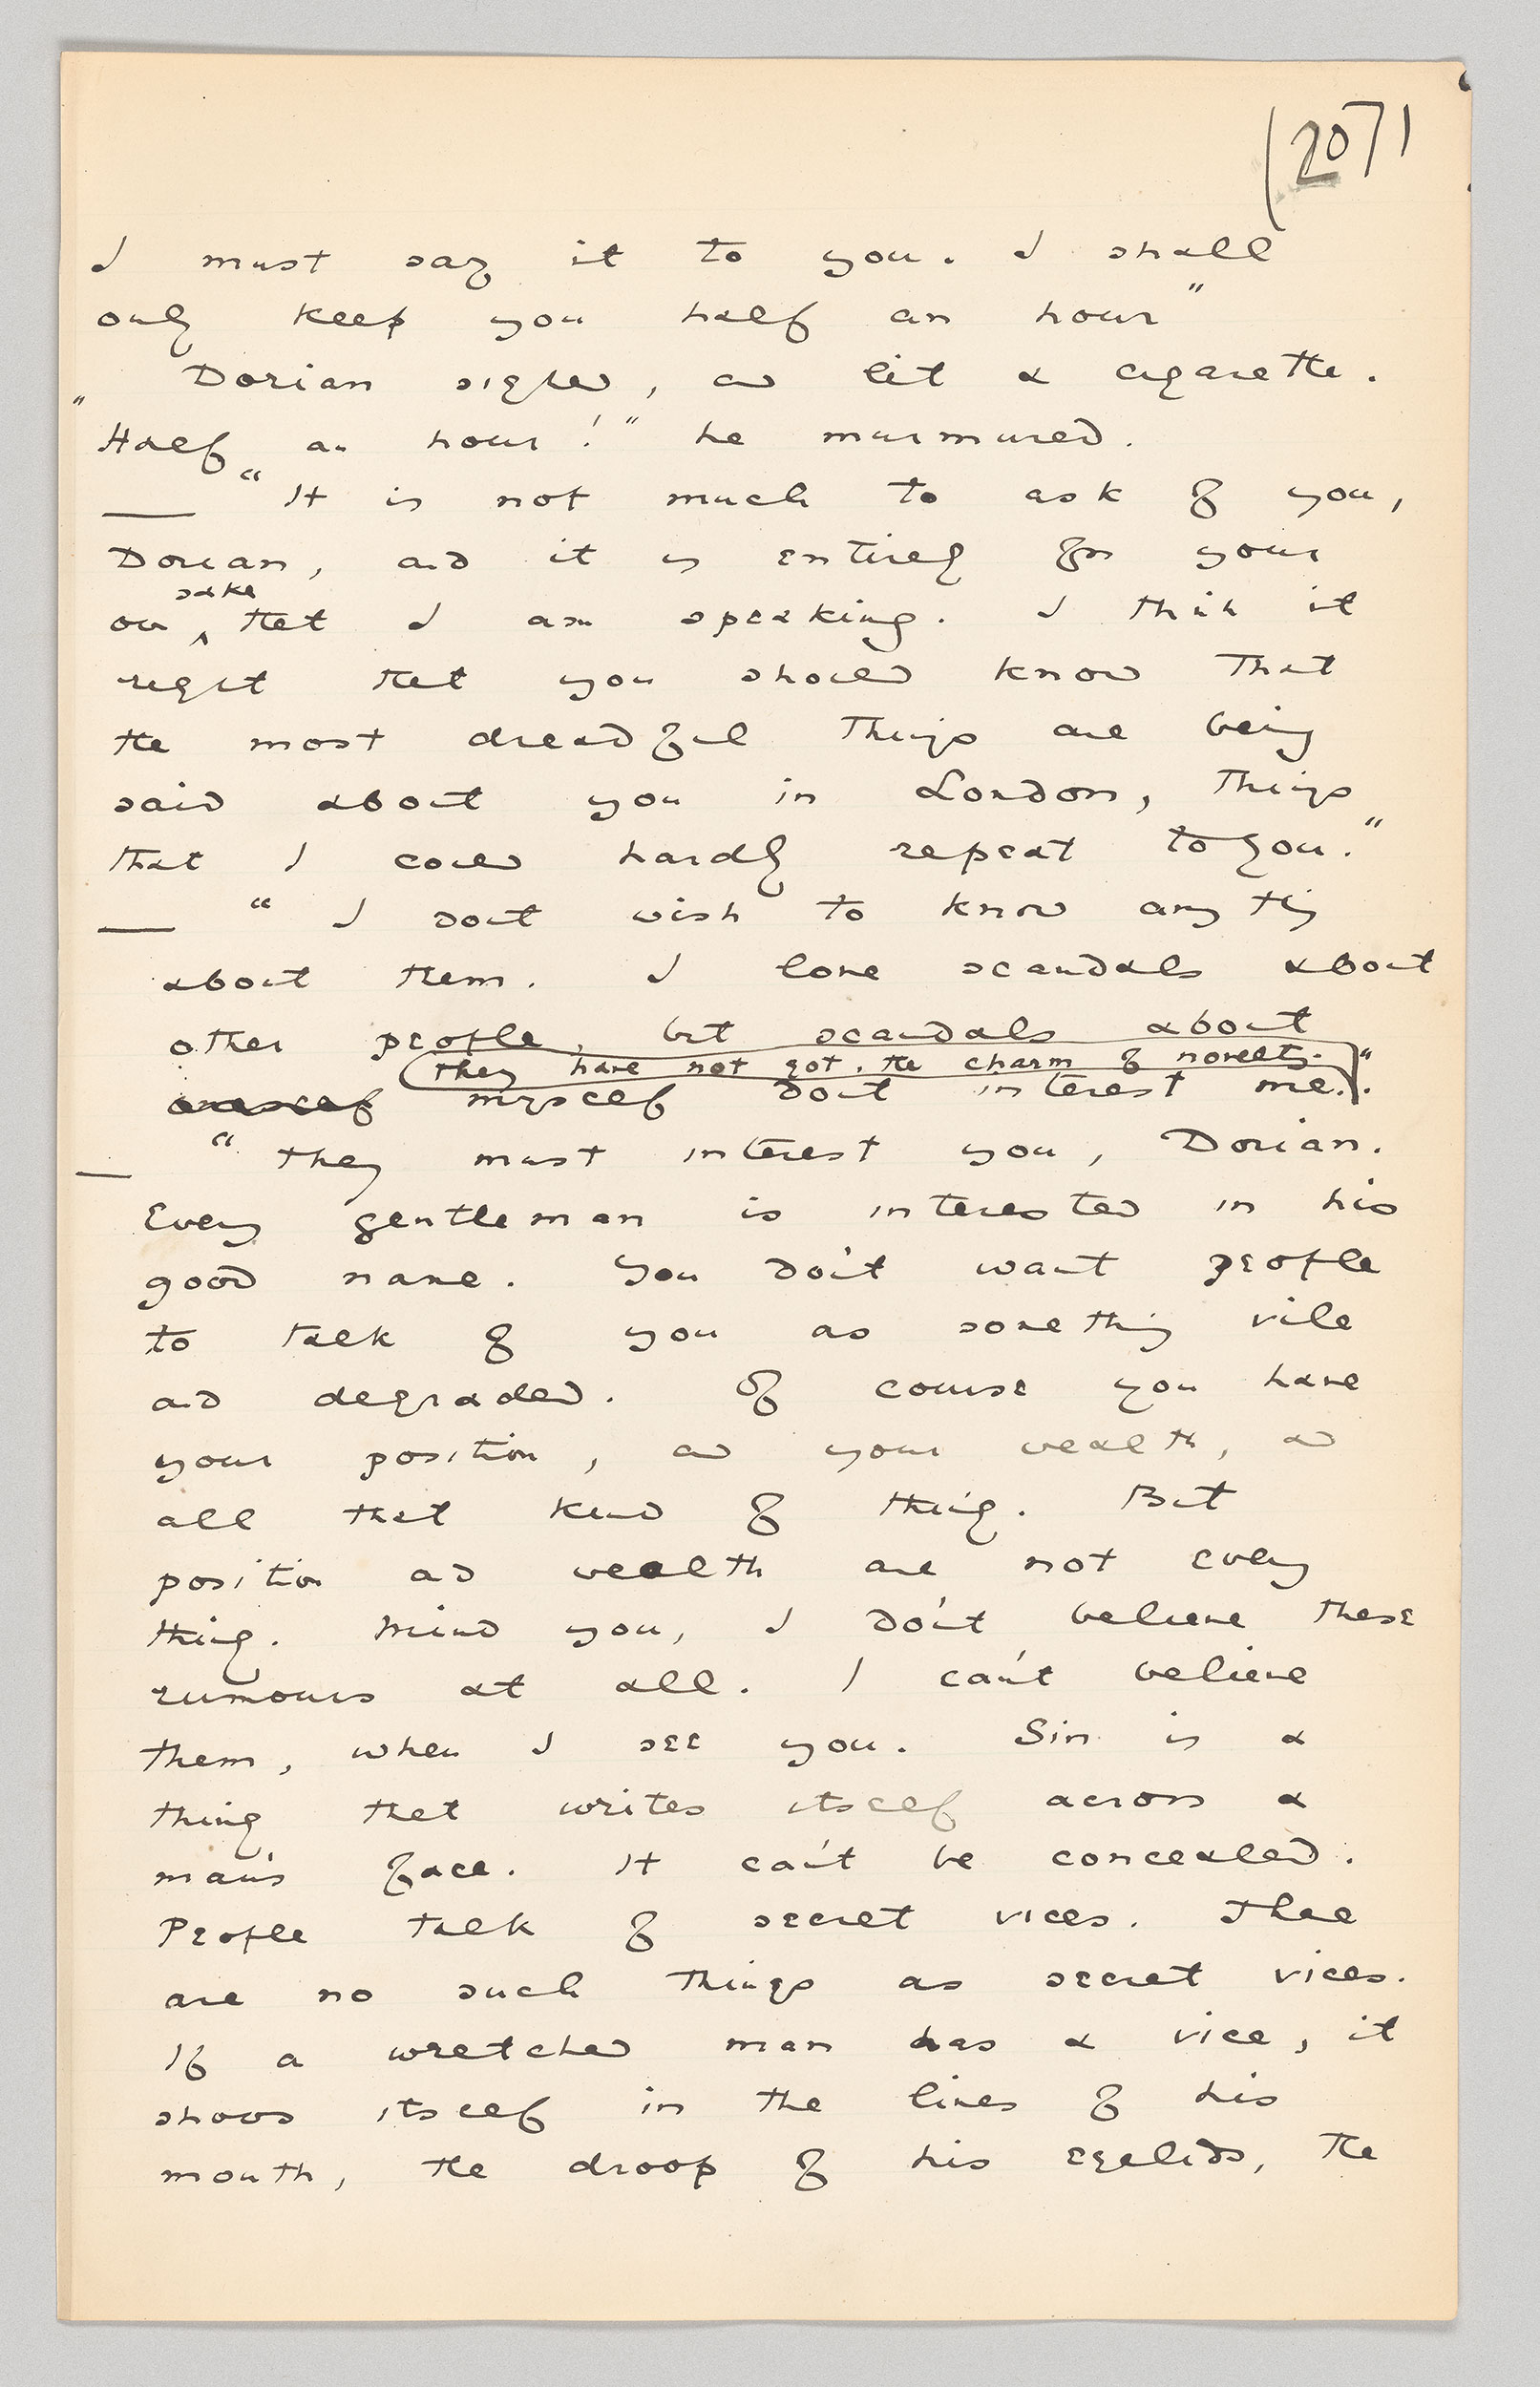 (207)
I must say it to you. I shall
only keep you half an hour"
Dorian sighed, and lit a cigarette.
"Half an hour!" he murmured.
— "It is not much to ask of you,
Dorian, and it is entirely for your
own sake that I am speaking. I think it
right that you should know that
the most dreadful things are being
said about you in London, things
that I could hardly repeat to you."
— "I don't wish to know anything
about them. I love scandals about
other people, but scandals about
myself don't interest me.
They have not got the charm of novelty."
— "They must interest you, Dorian.
Every gentleman is interested in his
good name. You don't want people
to talk of you as something vile
and degraded. Of course you have
your position, and your wealth, and
all that kind of thing. But
position and wealth are not every
thing. Mind you, I don't believe these
rumours at all. I can't believe
them, when I see you. Sin is a
thing that writes itself across a
man's face. It can't be concealed.
People talk of secret vices. There
are no such things as secret vices.
If a wretched man has a vice, it
shows itself in the lines of his
mouth, the droop of his eyelids, the